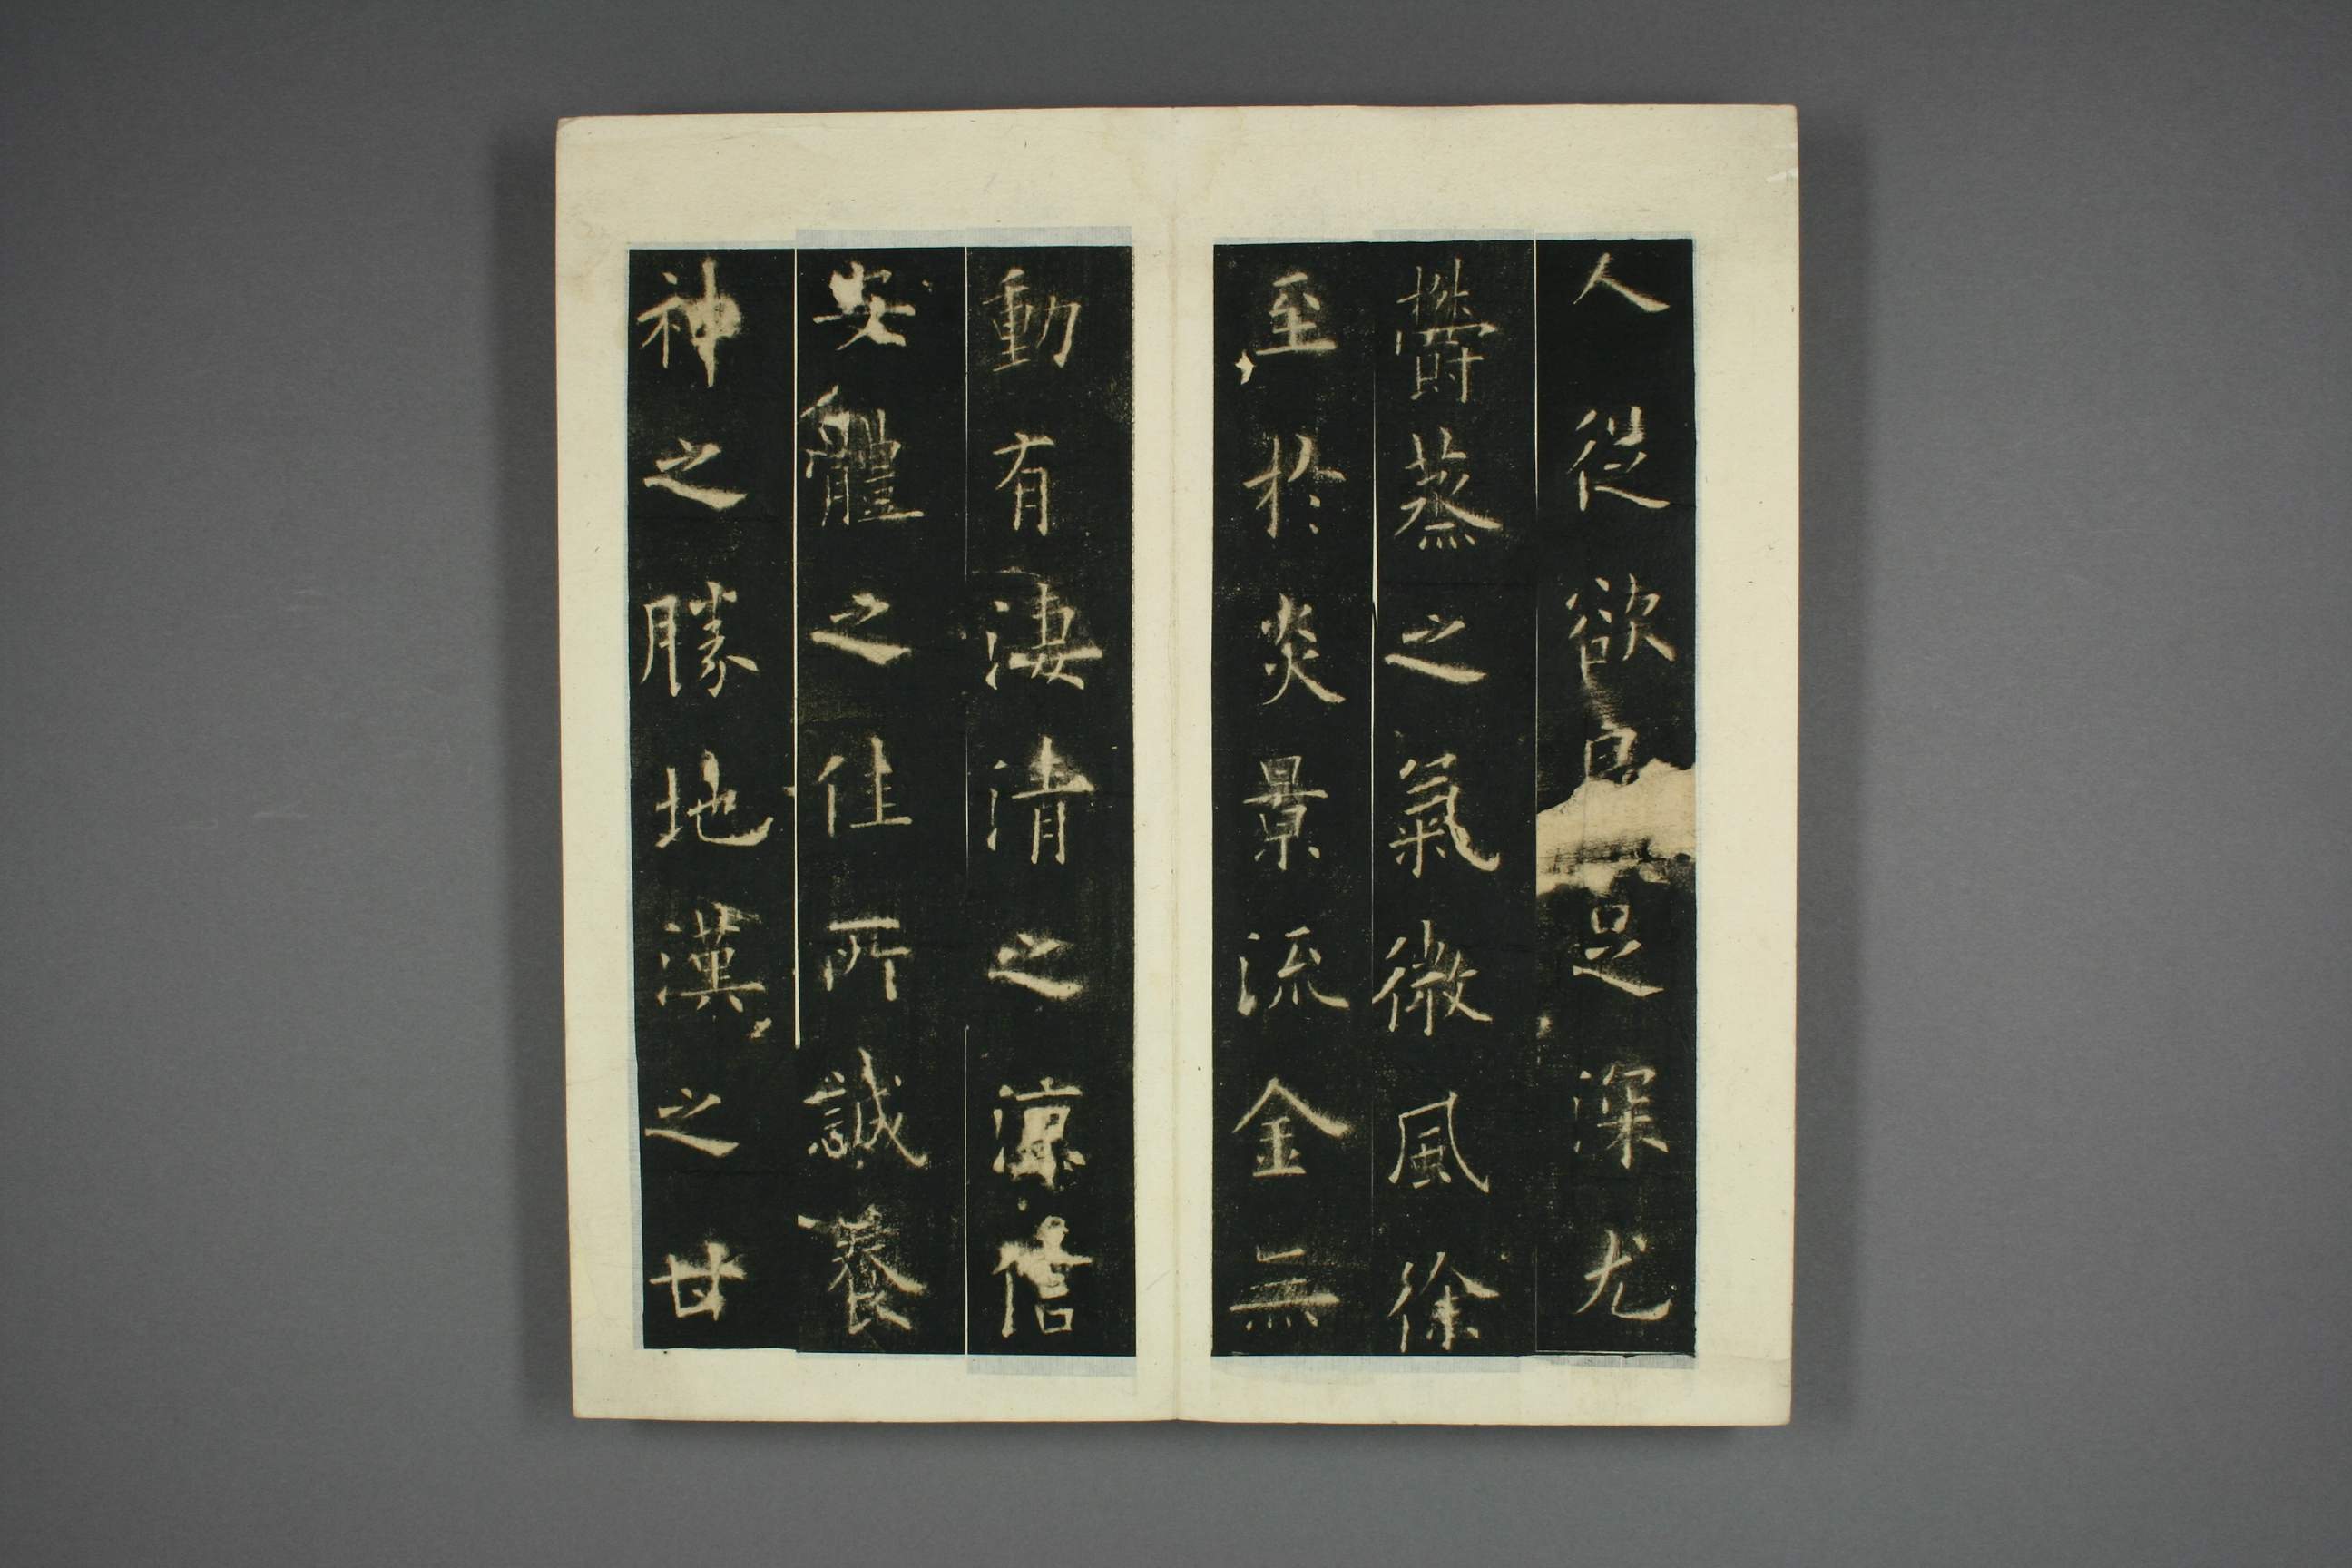 人從欲良足深尤
鬱蒸之氣微風徐
至於炎景流金無
動有淒清之涼信
安體之佳所誠養
神之勝地漢之甘